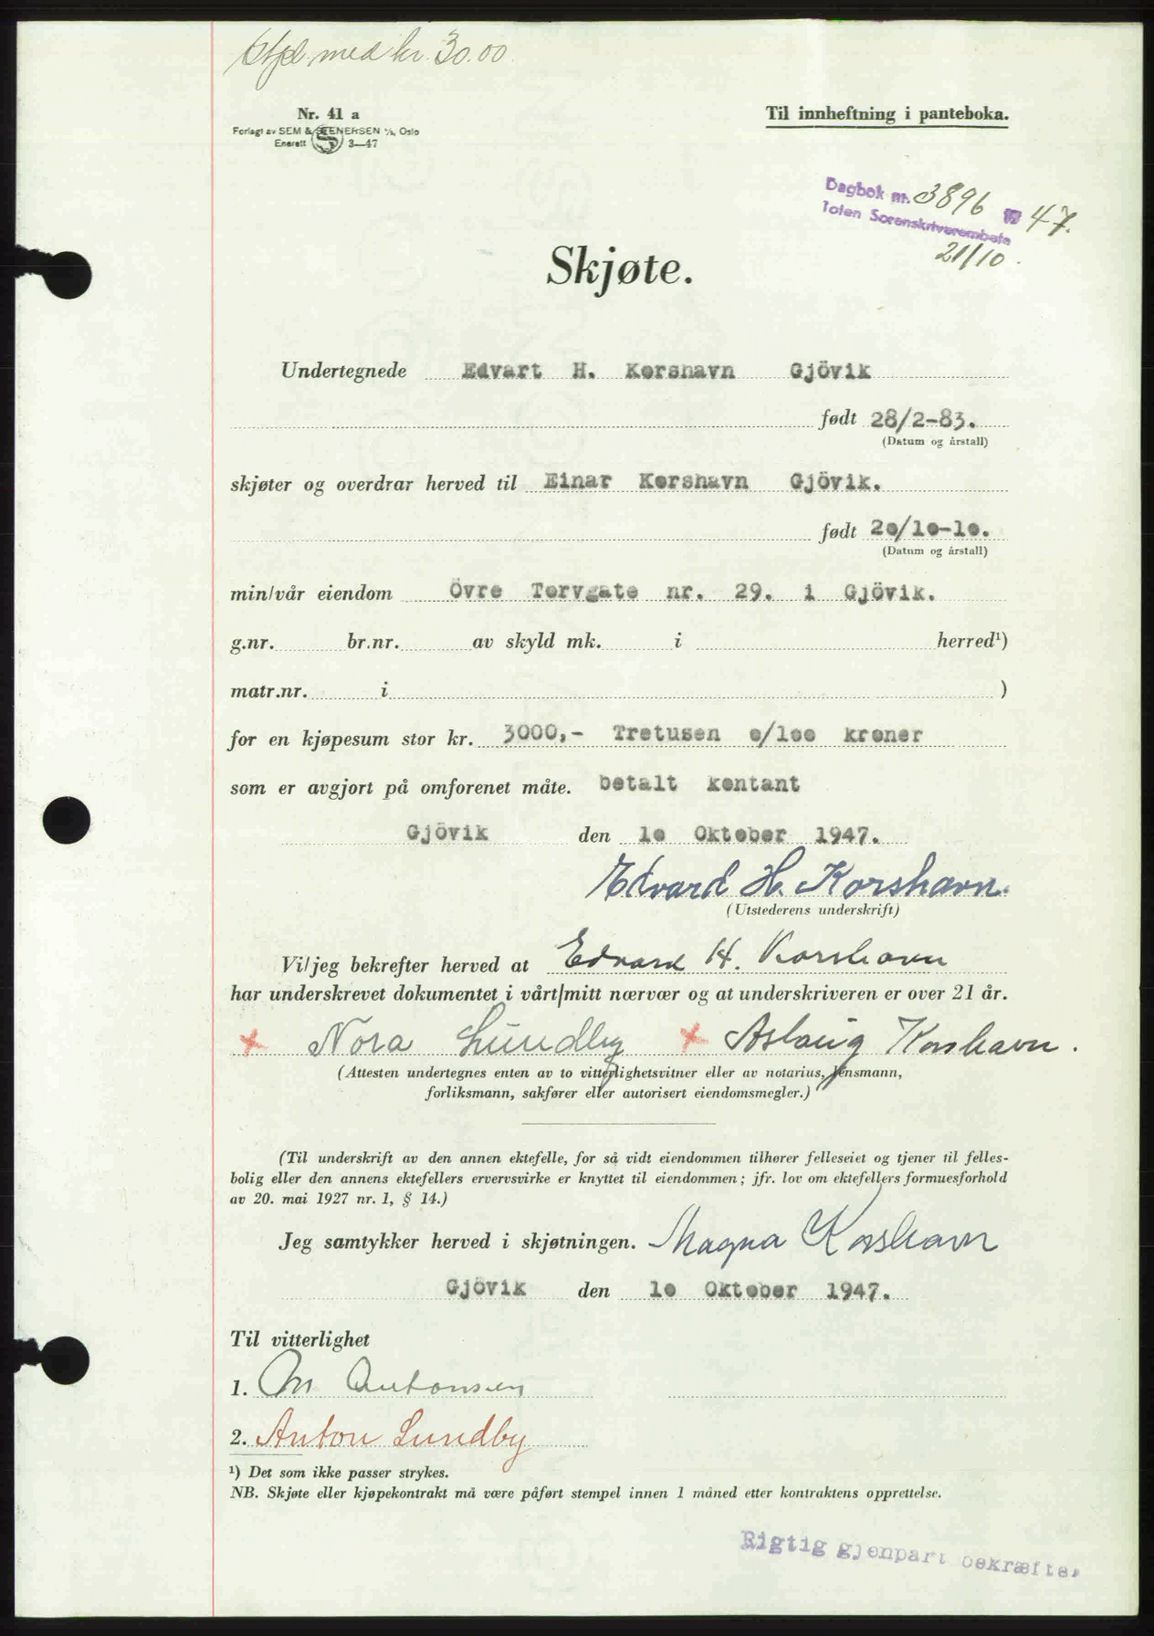 Stpl. med kr. 30.00
Nr. 41 a
Forlagt av SEM & STENERSEN A/S, Oslo
Enerett 3—47
Til innheftning i panteboka.
Dagbok nr. 3896 19 47.
Toten Sorenskriverembete
21/10.
Skjøte.
Undertegnede Edvart H. Korshavn Gjövik
født 28/2-83.
(Datum og årstall)
skjøter og overdrar herved til Einar Korshavn Gjövik.
født 20/10-10.
(Datum og årstall)
min/vår eiendom Övre Torvgate nr. 29. i Gjövik.
g.nr. br.nr. av skyld mk. i herred¹)
matr.nr. i )
for en kjøpesum stor kr. 3000,- Tretusen o/1oo kroner
som er avgjort på omforenet måte. betalt kontant
Gjövik den 10 Oktober 1947.
Edvard H. Korshavn.
(Utstederens underskrift)
Vi/jeg bekrefter herved at Edvard H. Korshavn
har underskrevet dokumentet i vårt/mitt nærvær og at underskriveren er over 21 år.
x Nora Lundby x Aslaug Korshavn.
(Attesten undertegnes enten av to vitterlighetsvitner eller av notarius, lensmann,
forliksmann, sakfører eller autorisert eiendomsmegler.)
(Til underskrift av den annen ektefelle, for så vidt eiendommen tilhører felleseiet og tjener til felles-
bolig eller den annens ektefellers ervervsvirke er knyttet til eiendommen; jfr. lov om ektefellers formuesforhold
av 20. mai 1927 nr. 1, § 14.)
Jeg samtykker herved i skjøtningen. Magna Korshavn
Gjövik den 10 Oktober 1947.
Til vitterlighet
1. M Antonsen
2. Anton Lundby
¹) Det som ikke passer strykes.
NB. Skjøte eller kjøpekontrakt må være påført stempel innen 1 måned etter kontraktens opprettelse.
Rigtig gjenpart bekræftes